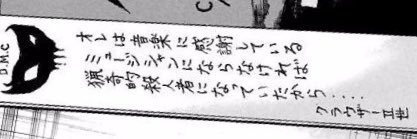 D.M.C
オレは音楽に感謝している
ミュージシャンにならなければ
猟奇的殺人者になっていたから.....
クラウザーII世